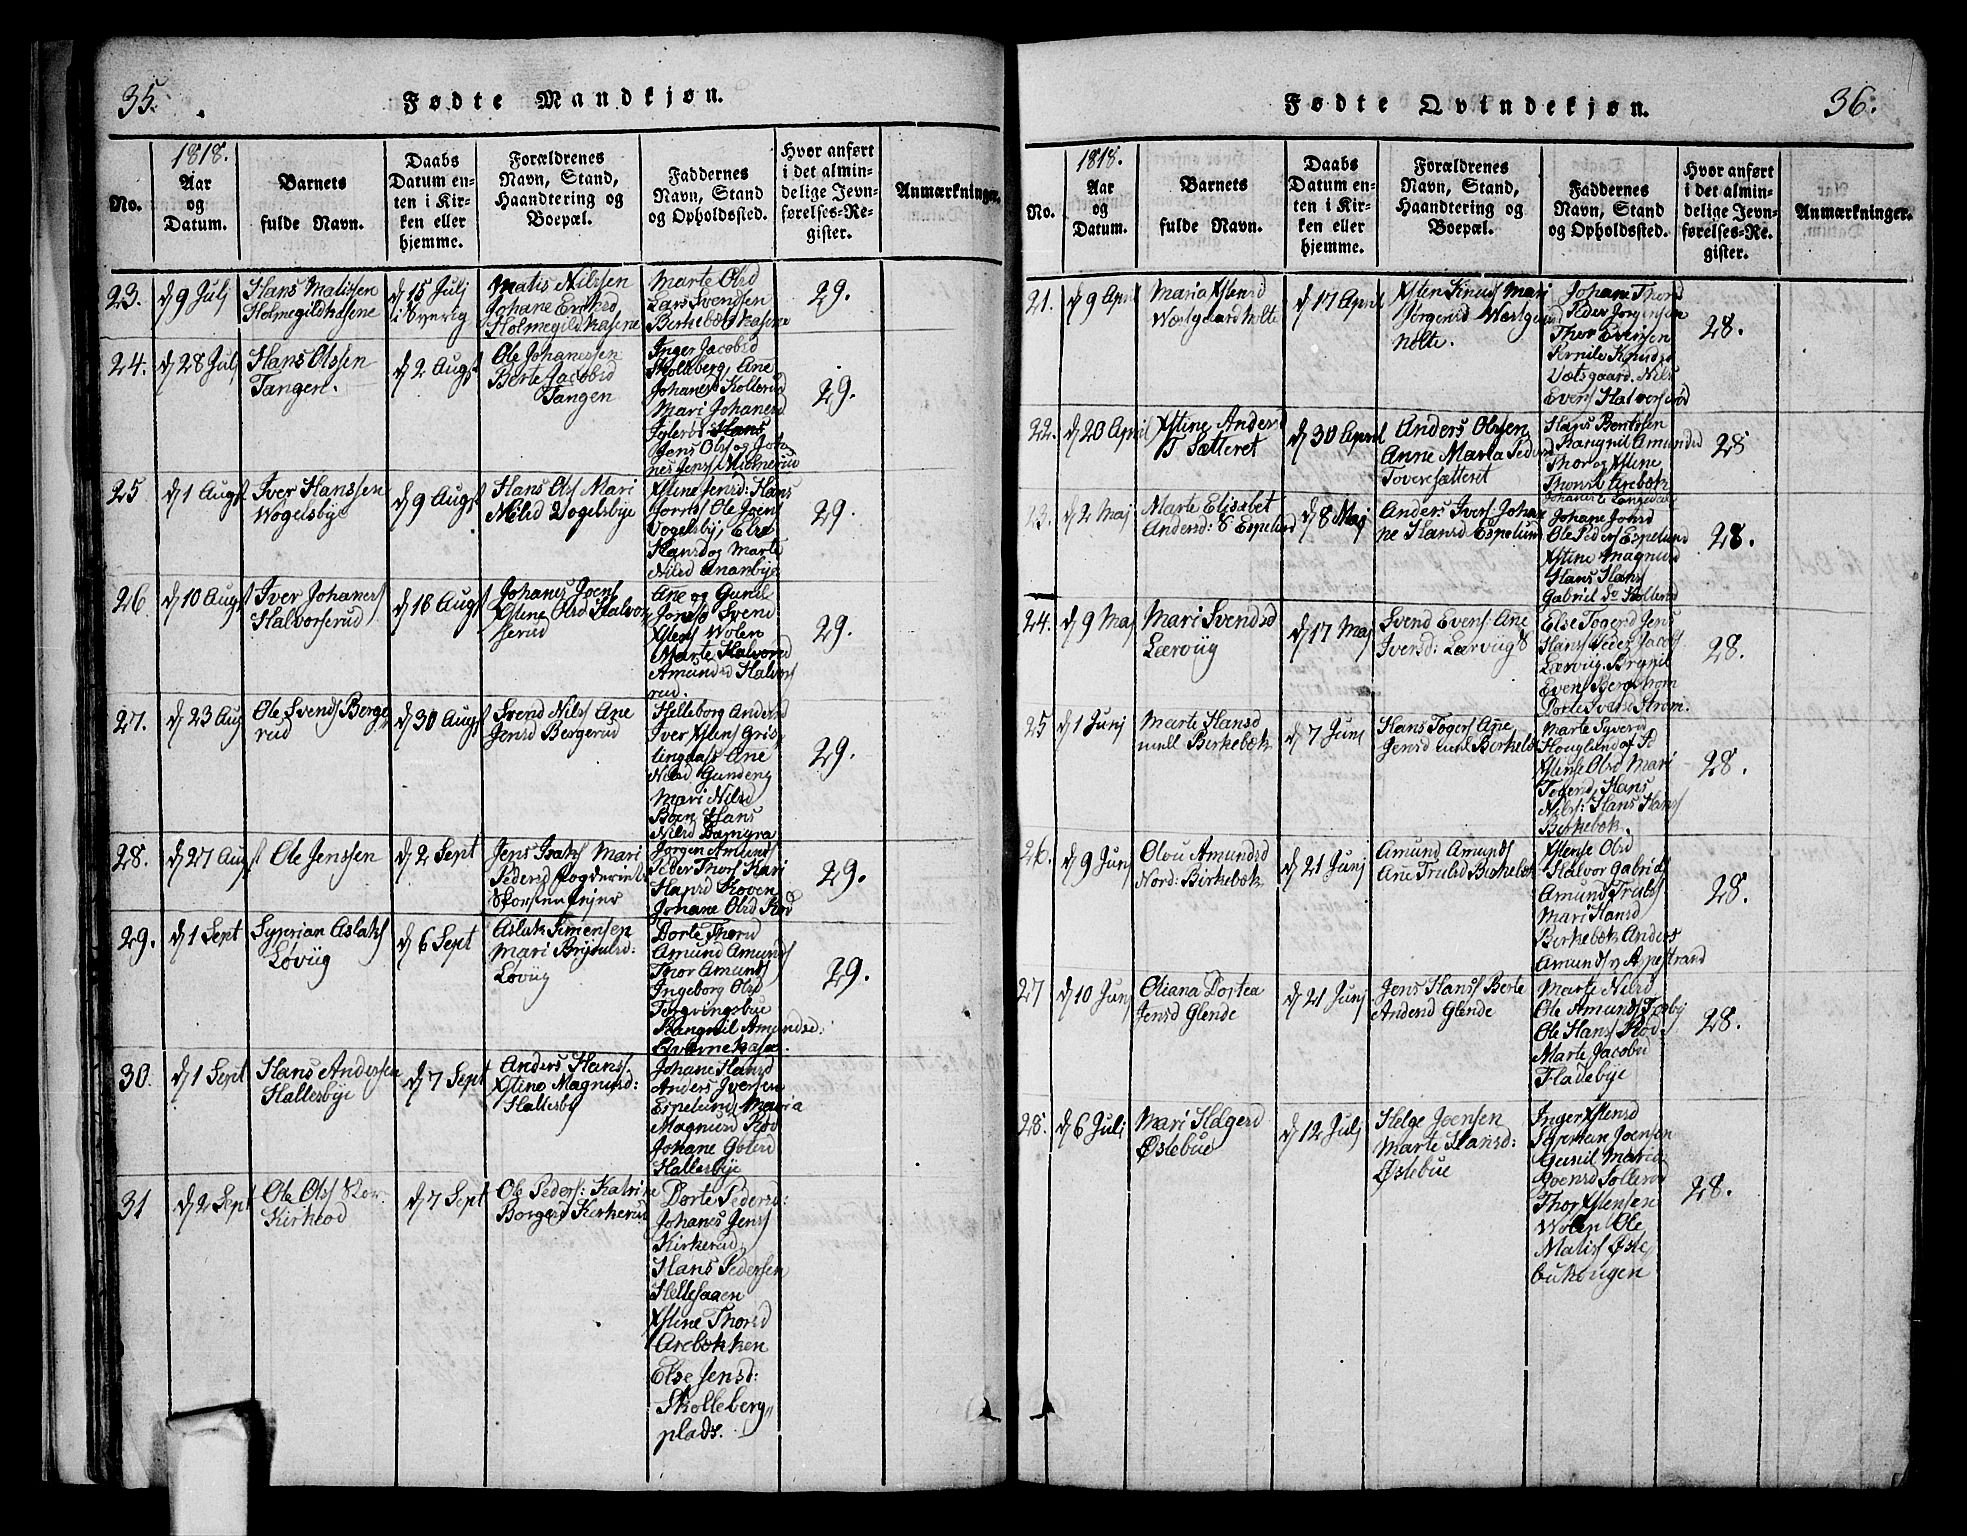 35.
Fødte Mandkjøn.
No.
1818.
Aar
og
Datum.
Barnets
fulde Navn.
Daabs
Datum en-
ten i Kir-
ken eller
hjemme.
Forældrenes
Navn, Stand,
Haandtering og
Boepæl.
Faddernes
Navn, Stand
og Opholdssted.
Hvor anført
i det almin-
delige Jevn-
førelses-Re-
gister.
Anmærkninger.
23.
d 9 Julj
Hans Matissen
Holmegildkasene
d 15 Julj
i Sverig
Matis Nilssen
Johane Ericksd
Holmegildkasene
Marte Olsd
Lars Svendsen
Birkebæk kasene
29.
24.
d 28 Julj
Hans Olssen
Tangen.
d 2 Augst
Ole Johanessen
Berte Jacobsd
Tangen
Inger Jacobsd
Skolleberg, Ane
Johanesd Kollerud
Mari Johanesd
Hans
Jens Olss og Joh
nes Jenss
29.
25
d 1 Augst
Iver Hanssen
Wogelsbye
d 9 Augst
Hans Olss Mari
Nilsd Vogelsbye
Xstine Jensd: Hans
Ole Jvers
Vogelsby, Else
Hansd og Marte
Nilsd Ananbye
29.
26
d 10 Augst
Iver Johaness
Halvorserud
d 16 Augst
Johanes Joens
Xstine Olsd Halvor
serud
Ane og Gunil
Svend
Xstens Wolen
Marte Halvorsd
Amundsd Halvors
rud.
29.
27.
d 23 Aug
Ole Svends Berge
rud
d 30 Augst
Svend Nilss Ane
Jensd Bergerud
Helleborg Andersd
Iver Xstens Gris
lingaas Ane
Nilsd Gundeng
Mari Nilsd
Boen Hans
Nilsd Damyra
29.
28.
d 27 Augst
Ole Jenssen
d 2 Sept
Jens Isaks Mari
Pedersd
Skorstenfejer
Jørgen Amunds
Peder Thors Kari
Hansd Skoven
Johane Olsd Skov
29.
29.
d 1 Sept
Syprian Aslaks
Løvüg
d 6 Sept
Aslak Simensen
Mari Brynilsd:
Løvüg
Dorte Thorsd
Amund Amunds
Thor Amunds
Ingeborg Olsd
Torgvingsbue
Rangnil Amundsd:
Qvernekasa.
29.
30.
d 1 Sept
Hans Andersen
Hallesbye
d 7 Sept
Anders Hans.
Xstine Magnusd:
Hallesby
Johane Hansd
Anders Iversen
Espelund, Maria
Magnusd Skov
Johane
Hallesbye
31
d 2 Sept
Ole Olss
Kirkerod
d 7 Sept
Ole Peders: Katrine
Borgersd Kirkerud
Dorte Pedersd:
Johanes Jenss
Kirkerud,
Hans Pedersen
Hellesaaen
Xstine Thorsd
Arebækken
Else Jensd:
Skolleberg„
plads.
36.
Fødte Qvindekjøn.
No.
1818.
Aar
og
Datum.
Barnets
fulde Navn.
Daabs
Datum en-
ten i Kir-
ken eller
hjemme.
Forældrenes
Navn, Stand,
Haandtering og
Boepæl.
Faddernes
Navn, Stand
og Opholdssted.
Hvor anført
i det almin-
delige Jevn-
førelses-Re-
gister.
Anmærkninger.
21.
d 9 April
Maria Xstensd
Wæstgaard holte
d 17 April
Xsten Knuds Mari
Jørgensd Wæstgaard
holte.
Johane Thorsd
Peder Jørgensen
Thor Evensen
Pernile Knudsd
Vætsgaard. Nils
Evens Halvorserød
28.
22.
d 20 April
Xstine Andersd
T Sætteret
d 30 April
Anders Olssen
Anne Maria Pedersd
Toversætteret
Hans Bentssen
Rangnil Amundsd
Thor og Xstine
Thorsd Arebæk
28
23.
d 2 Maj
Marte Elisabet
Andersd: 8 Espelund
d 8 Maj
Anders Ivers Johan
ne Hansd Espelund
Johane Jonsd
Ole Peders Espelund
Xstine Magnusd
Hans Hans
Gabriel
28.
24.
d 9 Maj
Mari Svendsd
Lærvüg
d 17 Maj
Svend Evens Ane
Iversd: Lærvüg 8
Else Togersd Jens
Hans Peder Jacobs
Lærvüg. Brynil
Evens Bergstrøm
Dorte Iversd Strøm.
28.
25
d 1 Junj
Marte Hansd
mell Birkebæk
d 7 Junj
Hans Togers Ane
Jensd mell Birkebæk
Marte Syversd
Xstense Olsd Mari
Togersd, Hans
Nilss: Hans Hans
Birkebæk.
28.
26.
d 9 Junj
Olvu Amundsd
Nord: Birkebæk
d 21 Junj
Amund Amunds
Ane Trulsd Birkebæk
Xstense Olsd
Halvor Gabriels
Amund Truls
Mari Hansd
Birkebæk Anders
Amunds Apestrand
28.
27
d 10 Junj
Oliana Dortea
Jensd Glende
d 21 Junj
Jens Hans Berte
Andersd Glende
Marte Nilsd
Ole Amunds
Ole Hans Skov.
Marte Jacobsd
Fladebye
28.
28.
d 6 Julj
Mari Helgesd
Østebue
d 12 Julj
Helge Joensen
Marte Hansd:
Østebue
Inger Xstensd
Syprian Joensen
Gunil Maria
Joensd Sollerød
Thor Xstensen
Wolen Ole
Matiss Øste
bukougen
28.